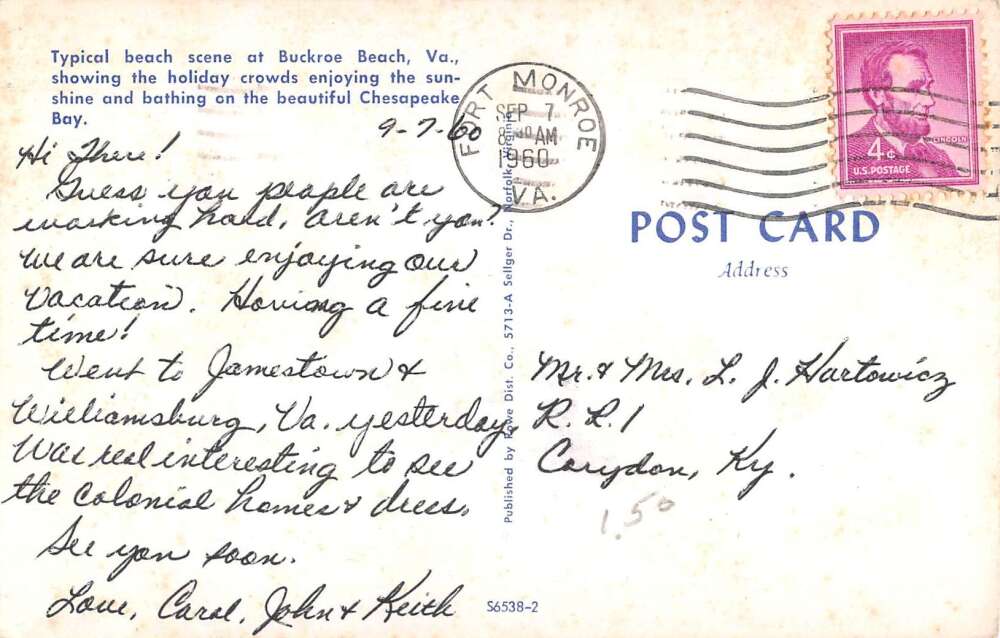 Typical beach scene at Buckroe Beach, Va.,
showing the holiday crowds enjoying the sun-
shine and bathing on the beautiful Chesapeake
Bay.
9-7-60
Hi There!
Guess you people are
working hard, aren't you?
We are sure enjoying our
vacation. Having a fine
time!
Went to Jamestown &
Williamsburg, Va. yesterday.
Was real interesting to see
the colonial homes & dress.
See you soon.
Love, Carol, John & Keith
FORT MONROE
SEP 7
8 AM
1960
VA.
Published by Rowe Dist. Co., 5713-A Sellger Dr., Norfolk, Virginia
S6538-2
LINCOLN
4¢
U.S. POSTAGE
POST CARD
Address
Mr. & Mrs. L. J. Hartowicz
R. R. 1
Corydon, Ky.
1.50